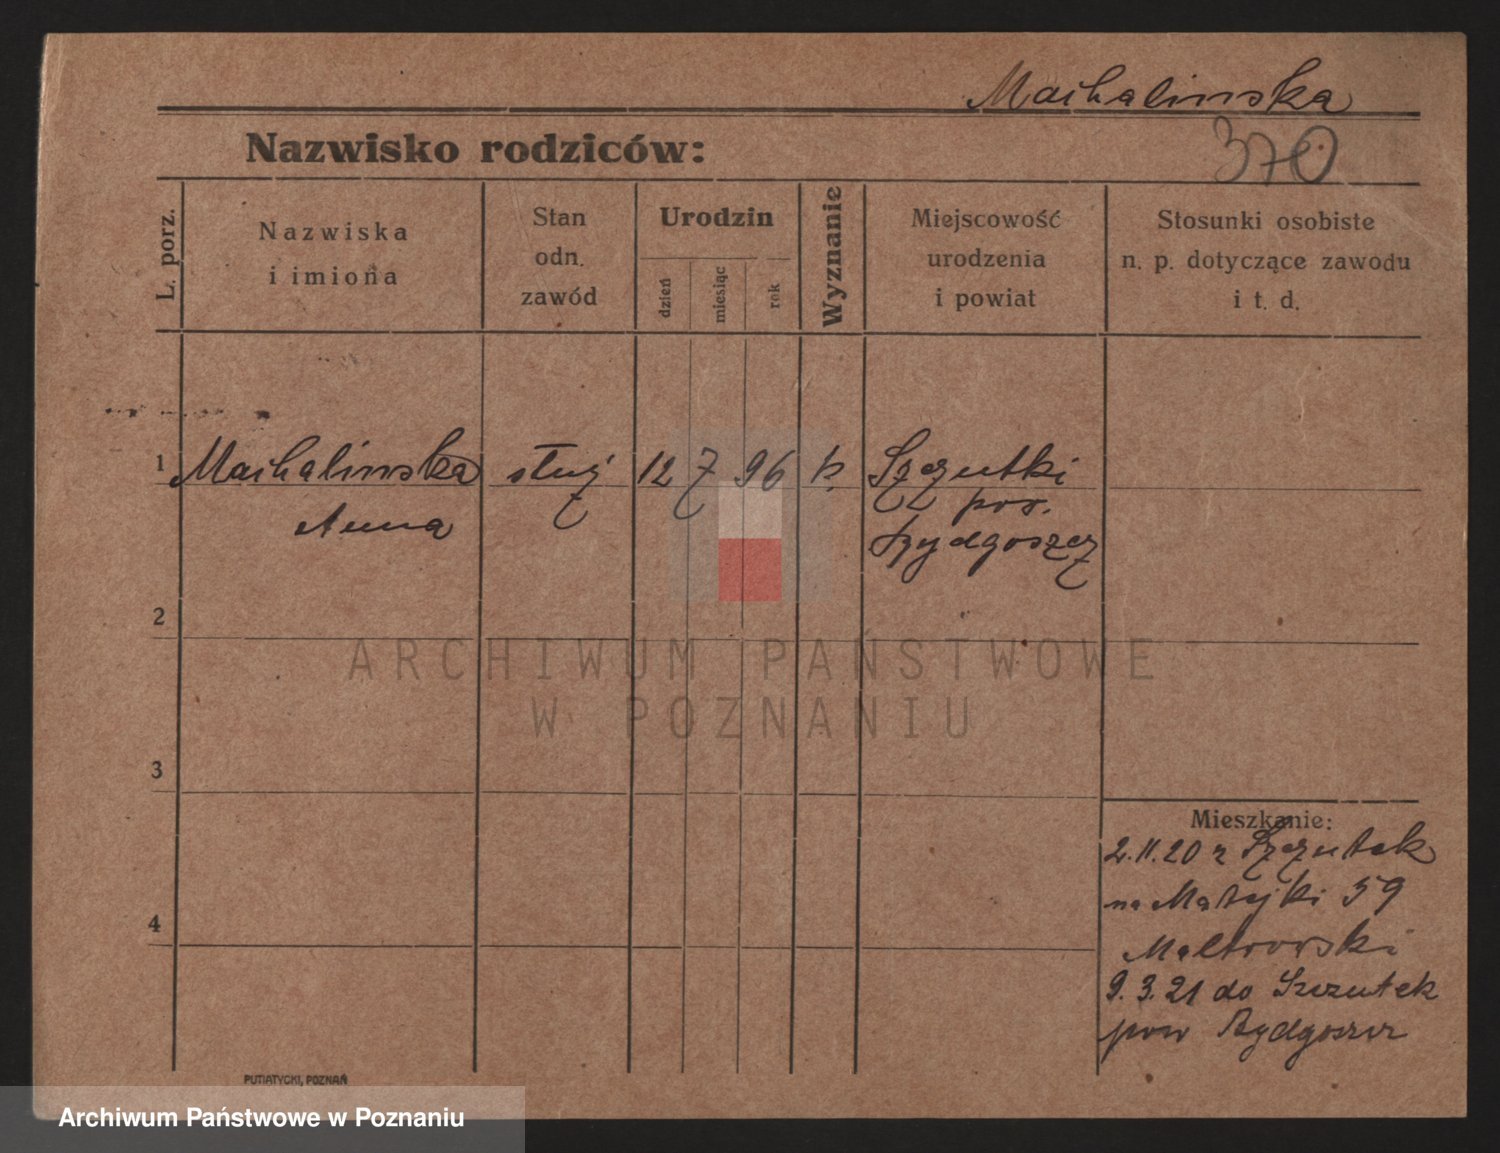 Machalinska
Nazwisko rodziców:
370
L. porz.
Nazwiska
i imiona
Stan
odn.
zawód
Urodzin
dzień
miesiąc
rok
Wyznanie
Miejscowość
urodzenia
i powiat
Stosunki osobiste
n. p. dotyczące zawodu
i t. d.
1 Machalinska służ 12 7 96 k. Szczutki
Anna pow.
Bydgoszcz
2
3
4
Mieszkanie:
2.11.20 z Szczutek
na Matejki 59
9.3.21 do Szczutek
pow Bydgoszcz
PUTIATYCKI, POZNAŃ
ARCHIWUM PAŃSTWOWE
W POZNANIU
Archiwum Państwowe w Poznaniu